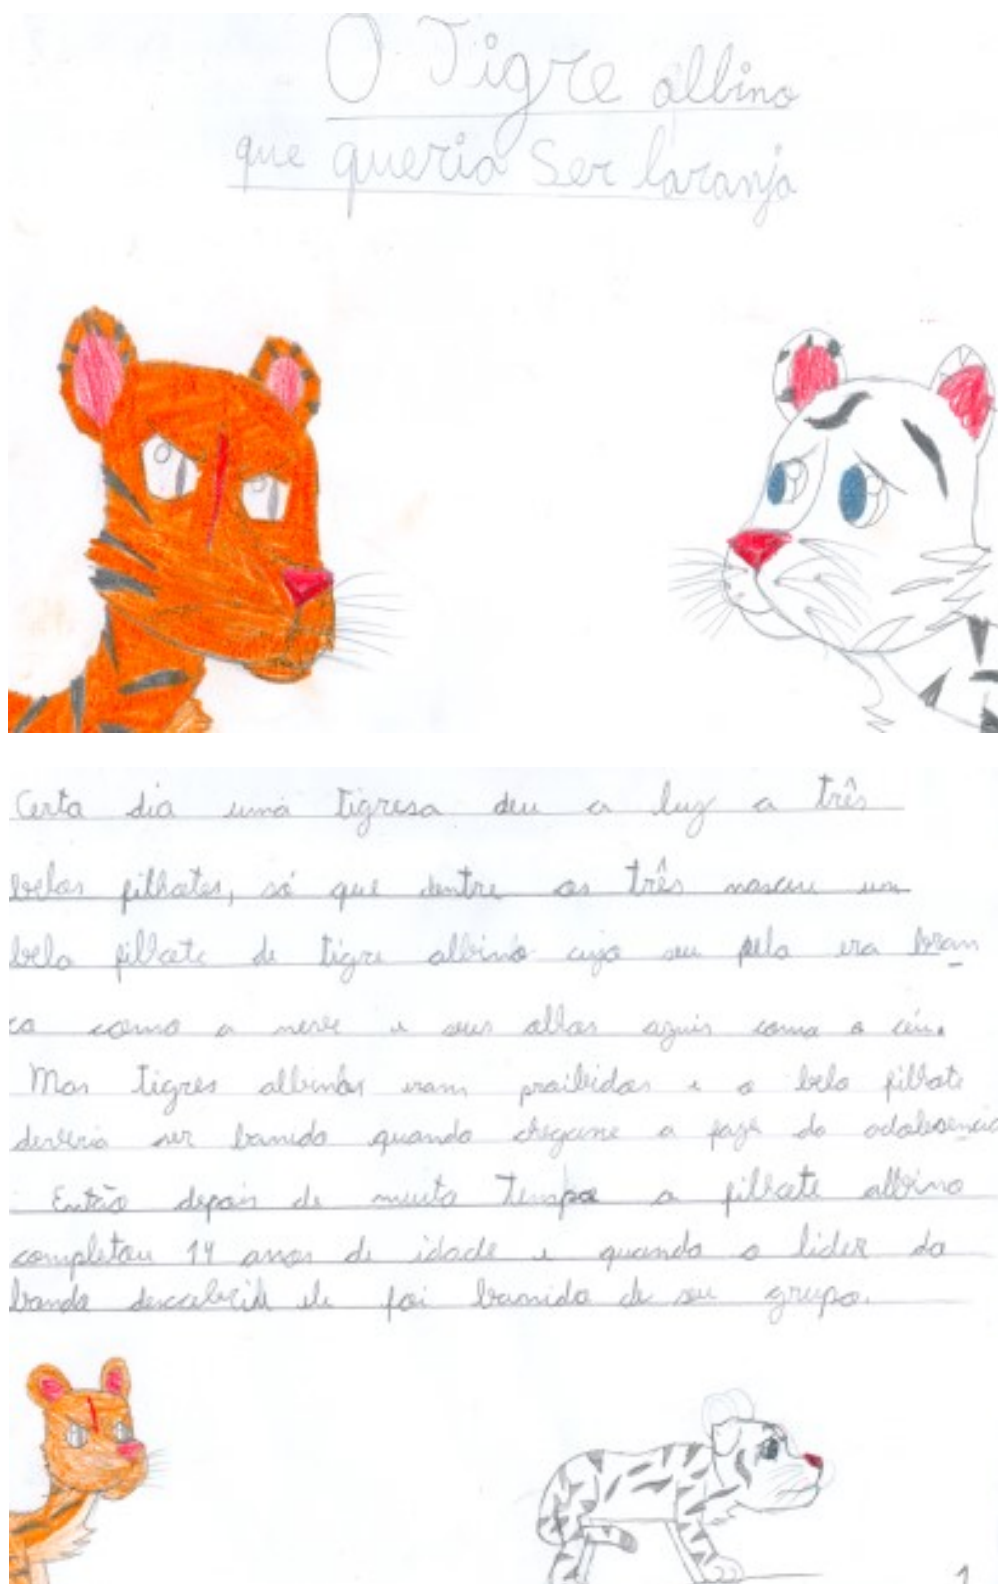 O Tigre albino
que queria Ser laranja
Certa dia uma tigresa deu a luz a três
belos filhotes, só que dentre os três nasceu um
belo filhote de tigre albino cujo seu pelo era bran
co como a neve e seus olhos azuis como o céu.
Mas tigres albinos eram proibidos e o belo filhote
deveria ser banido quando chegasse a faze da adolesencia
Então depois de muito tempo o filhote albino
completou 14 anos de idade e quando o lider do
bando descobriu ele foi banido de seu grupo.
1